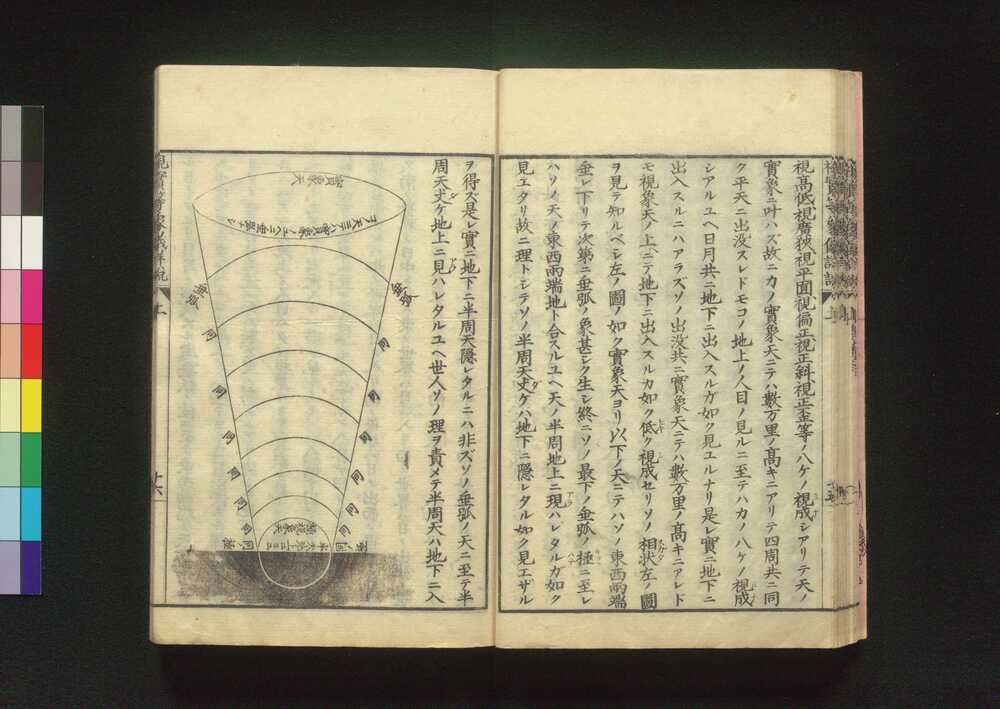 視高低視廣狹視平面視偏正視正斜視正歪等ノ八ケノ視成シアリテ天ノ
實象ニ叶ハズ故ニカノ實象天ニテハ數万里ノ高キニアリテ四周共ニ同
ク平天ニ出沒スレドモコノ地上ノ人目ノ見ルニ至テハカノ八ケノ視成
シアルユヘ日月共ニ地下ニ出入スルガ如ク見ユルナリ是レ實ニ地下ニ
出入スルニハアラズソノ出沒共ニ實象天ニテハ數万里ノ高キニアレド
モ視象天ノ上ニテ地下ニ出入スルカ如ク低ク視成セリソノ相状左ノ圖
ヲ見テ知ルベシ左ノ圖ノ如ク實象天ヨリ以下ノ天ニテハソノ東西兩端
垂レ下リテ次第ニ垂弧ノ象甚シク生シ終ニソノ最下ノ垂弧ノ極ニ至レ
ハソノ天ノ東西兩端地ト合スルユヘ天ノ半周地上ニ現ハレタルガ如ク
見エタリ故ニ理トシテソノ半周天丈ケハ地下ニ隱レタル如ク見エザル
ヲ得ズ是レ實ニ地下ニ半周天隱レタルニハ非ズソノ垂弧ノ天ニ至テ半
周天丈ケ地上ニ見ハレタルユヘ世人ソノ理ヲ責メテ半周天ハ地下ニ入
實象天
垂弧
垂弧
同
同
同
同
同
同
同
同
同
同
同
視象天
上
十六